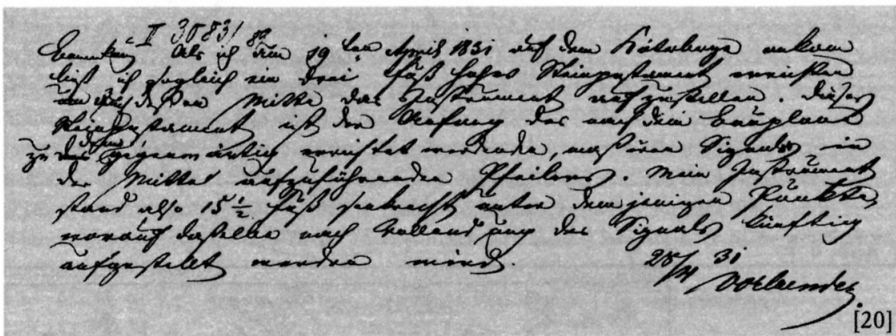 II 30831
Bemerkung Als ich am 19ten April 1831 auf dem Köterberge ankam
ließ ich sogleich ein drei Fuß hohes Steinpostament errichten
um auf dessen Mitte das Instrument aufzustellen. Dieses
Steinpostament ist der Anfang des nach dem Bauplane
zu dem gegenwärtig errichtet werdenden, massiven Signals in
der Mitte aufzuführenden Pfeilers. Mein Instrument
stand also 15 1/2 Fuß senkrecht unter demjenigen Punkte,
worauf dasselbe nach Vollendung des Signals künftig
aufgestellt werden wird.
28/4 31
Vorlaender
[20]